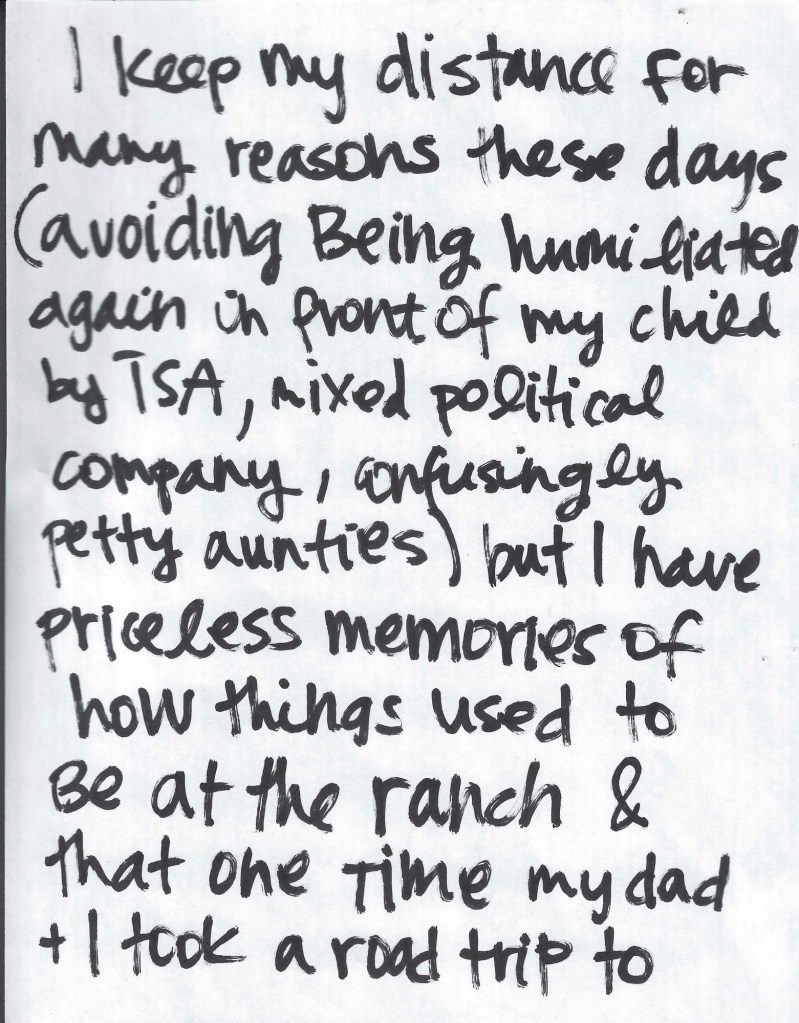 I keep my distance for
many reasons these days
(avoiding Being humiliated
again in front of my child
by TSA, mixed political
company, confusingly
petty aunties) but I have
priceless memories of
how things used to
Be at the ranch &
that one Time my dad
+ I took a road trip to